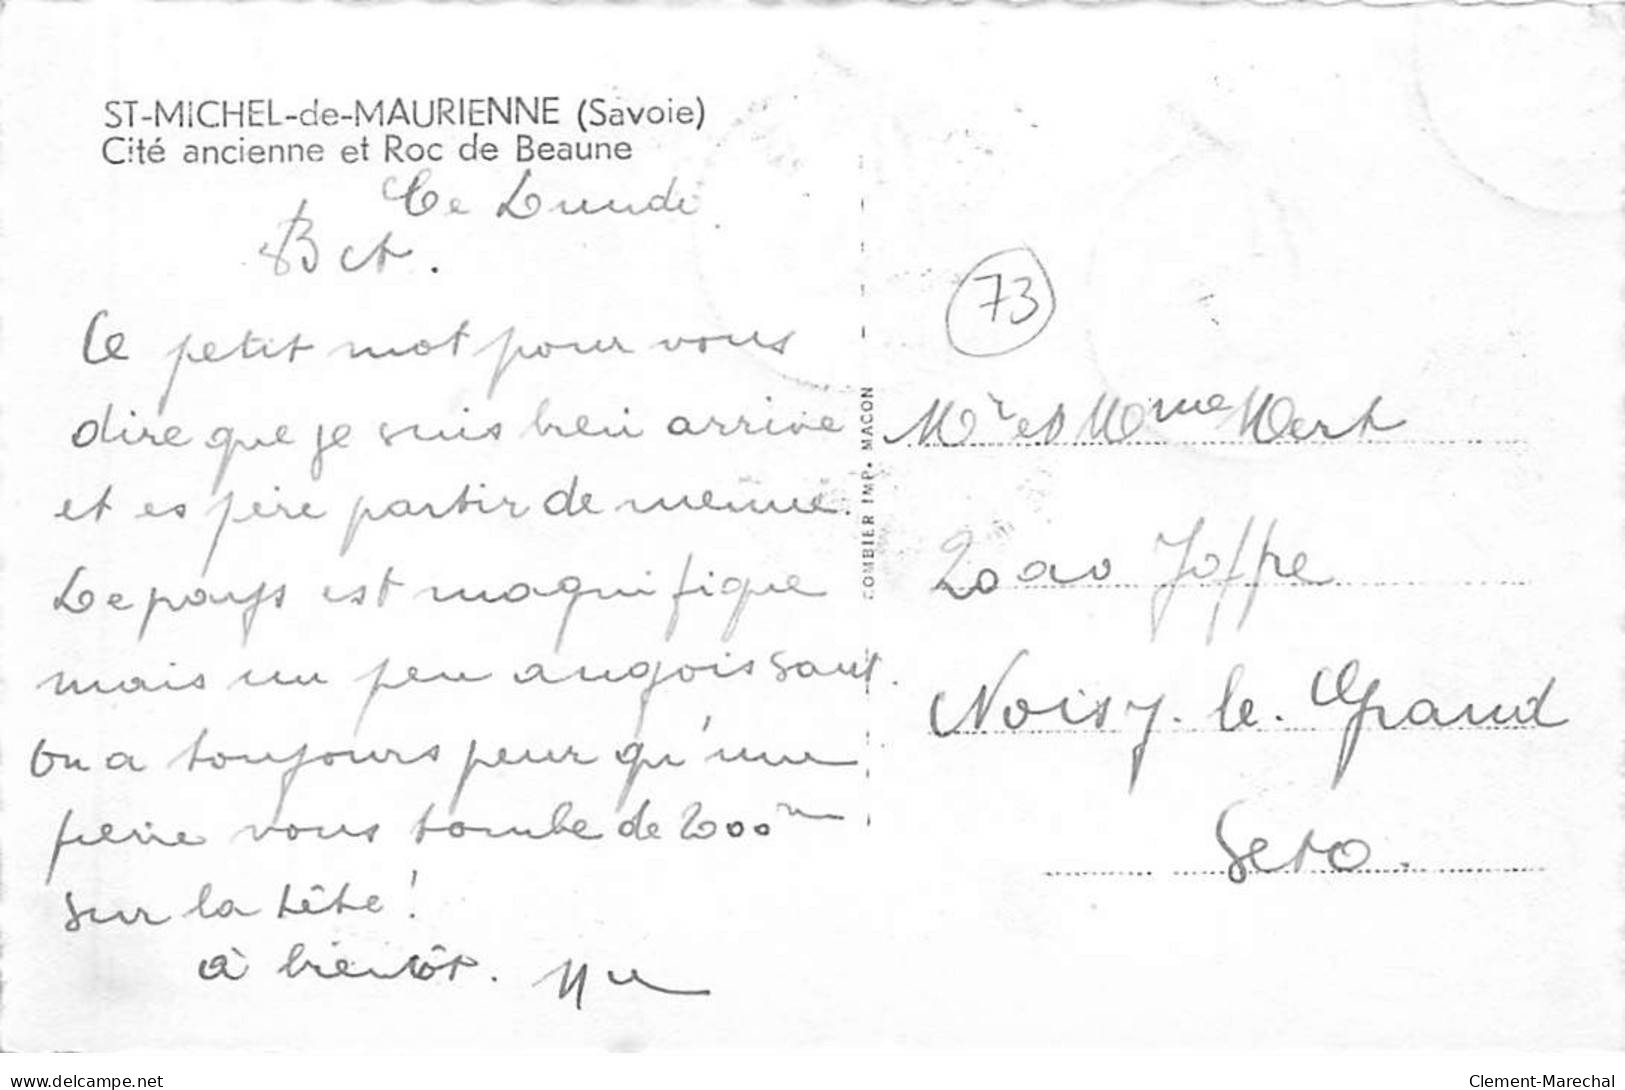 ST-MICHEL-de-MAURIENNE (Savoie)
Cité ancienne et Roc de Beaune
Ce Lundi
Ce petit mot pour vous
dire que je suis bien arrivé
et espère partir de même.
Le pays est magnifique
mais un peu angoissant.
On a toujours peur qu'une
pierre vous tombe de 2000m
sur la tête!
à bientôt.
COMBIER IMP. MACON
73
Mr et Mme
20 av Joffre
Noisy-le-Grand
Seto.
delcampe.net
Clement-Marechal